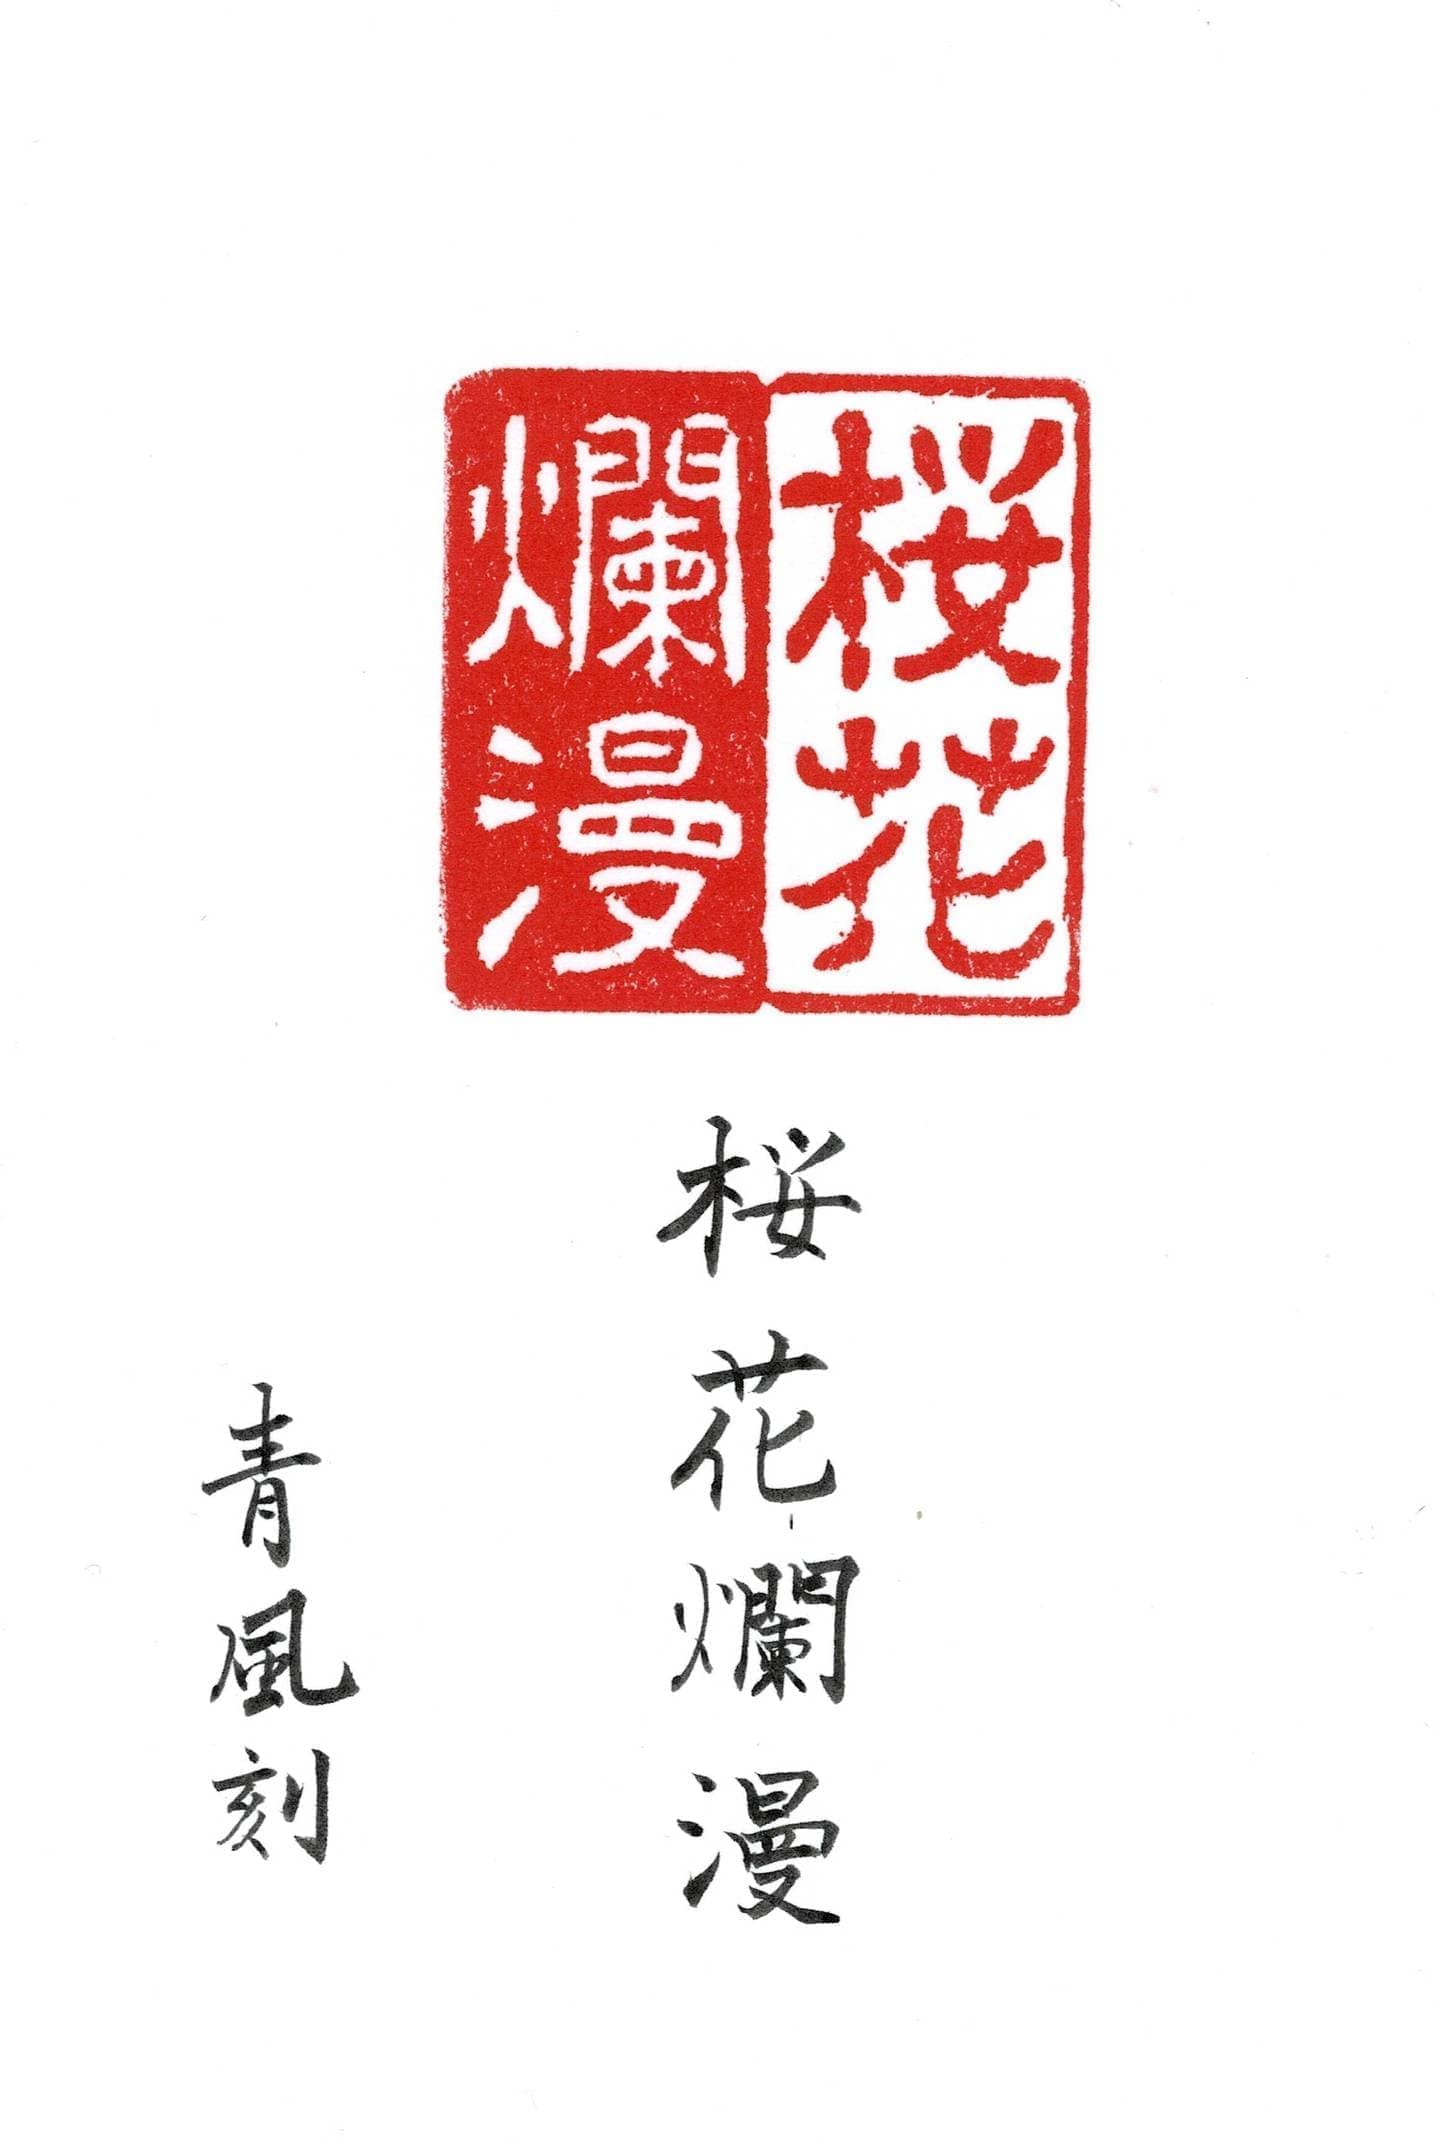 桜花
爛漫
桜花爛漫
青風刻